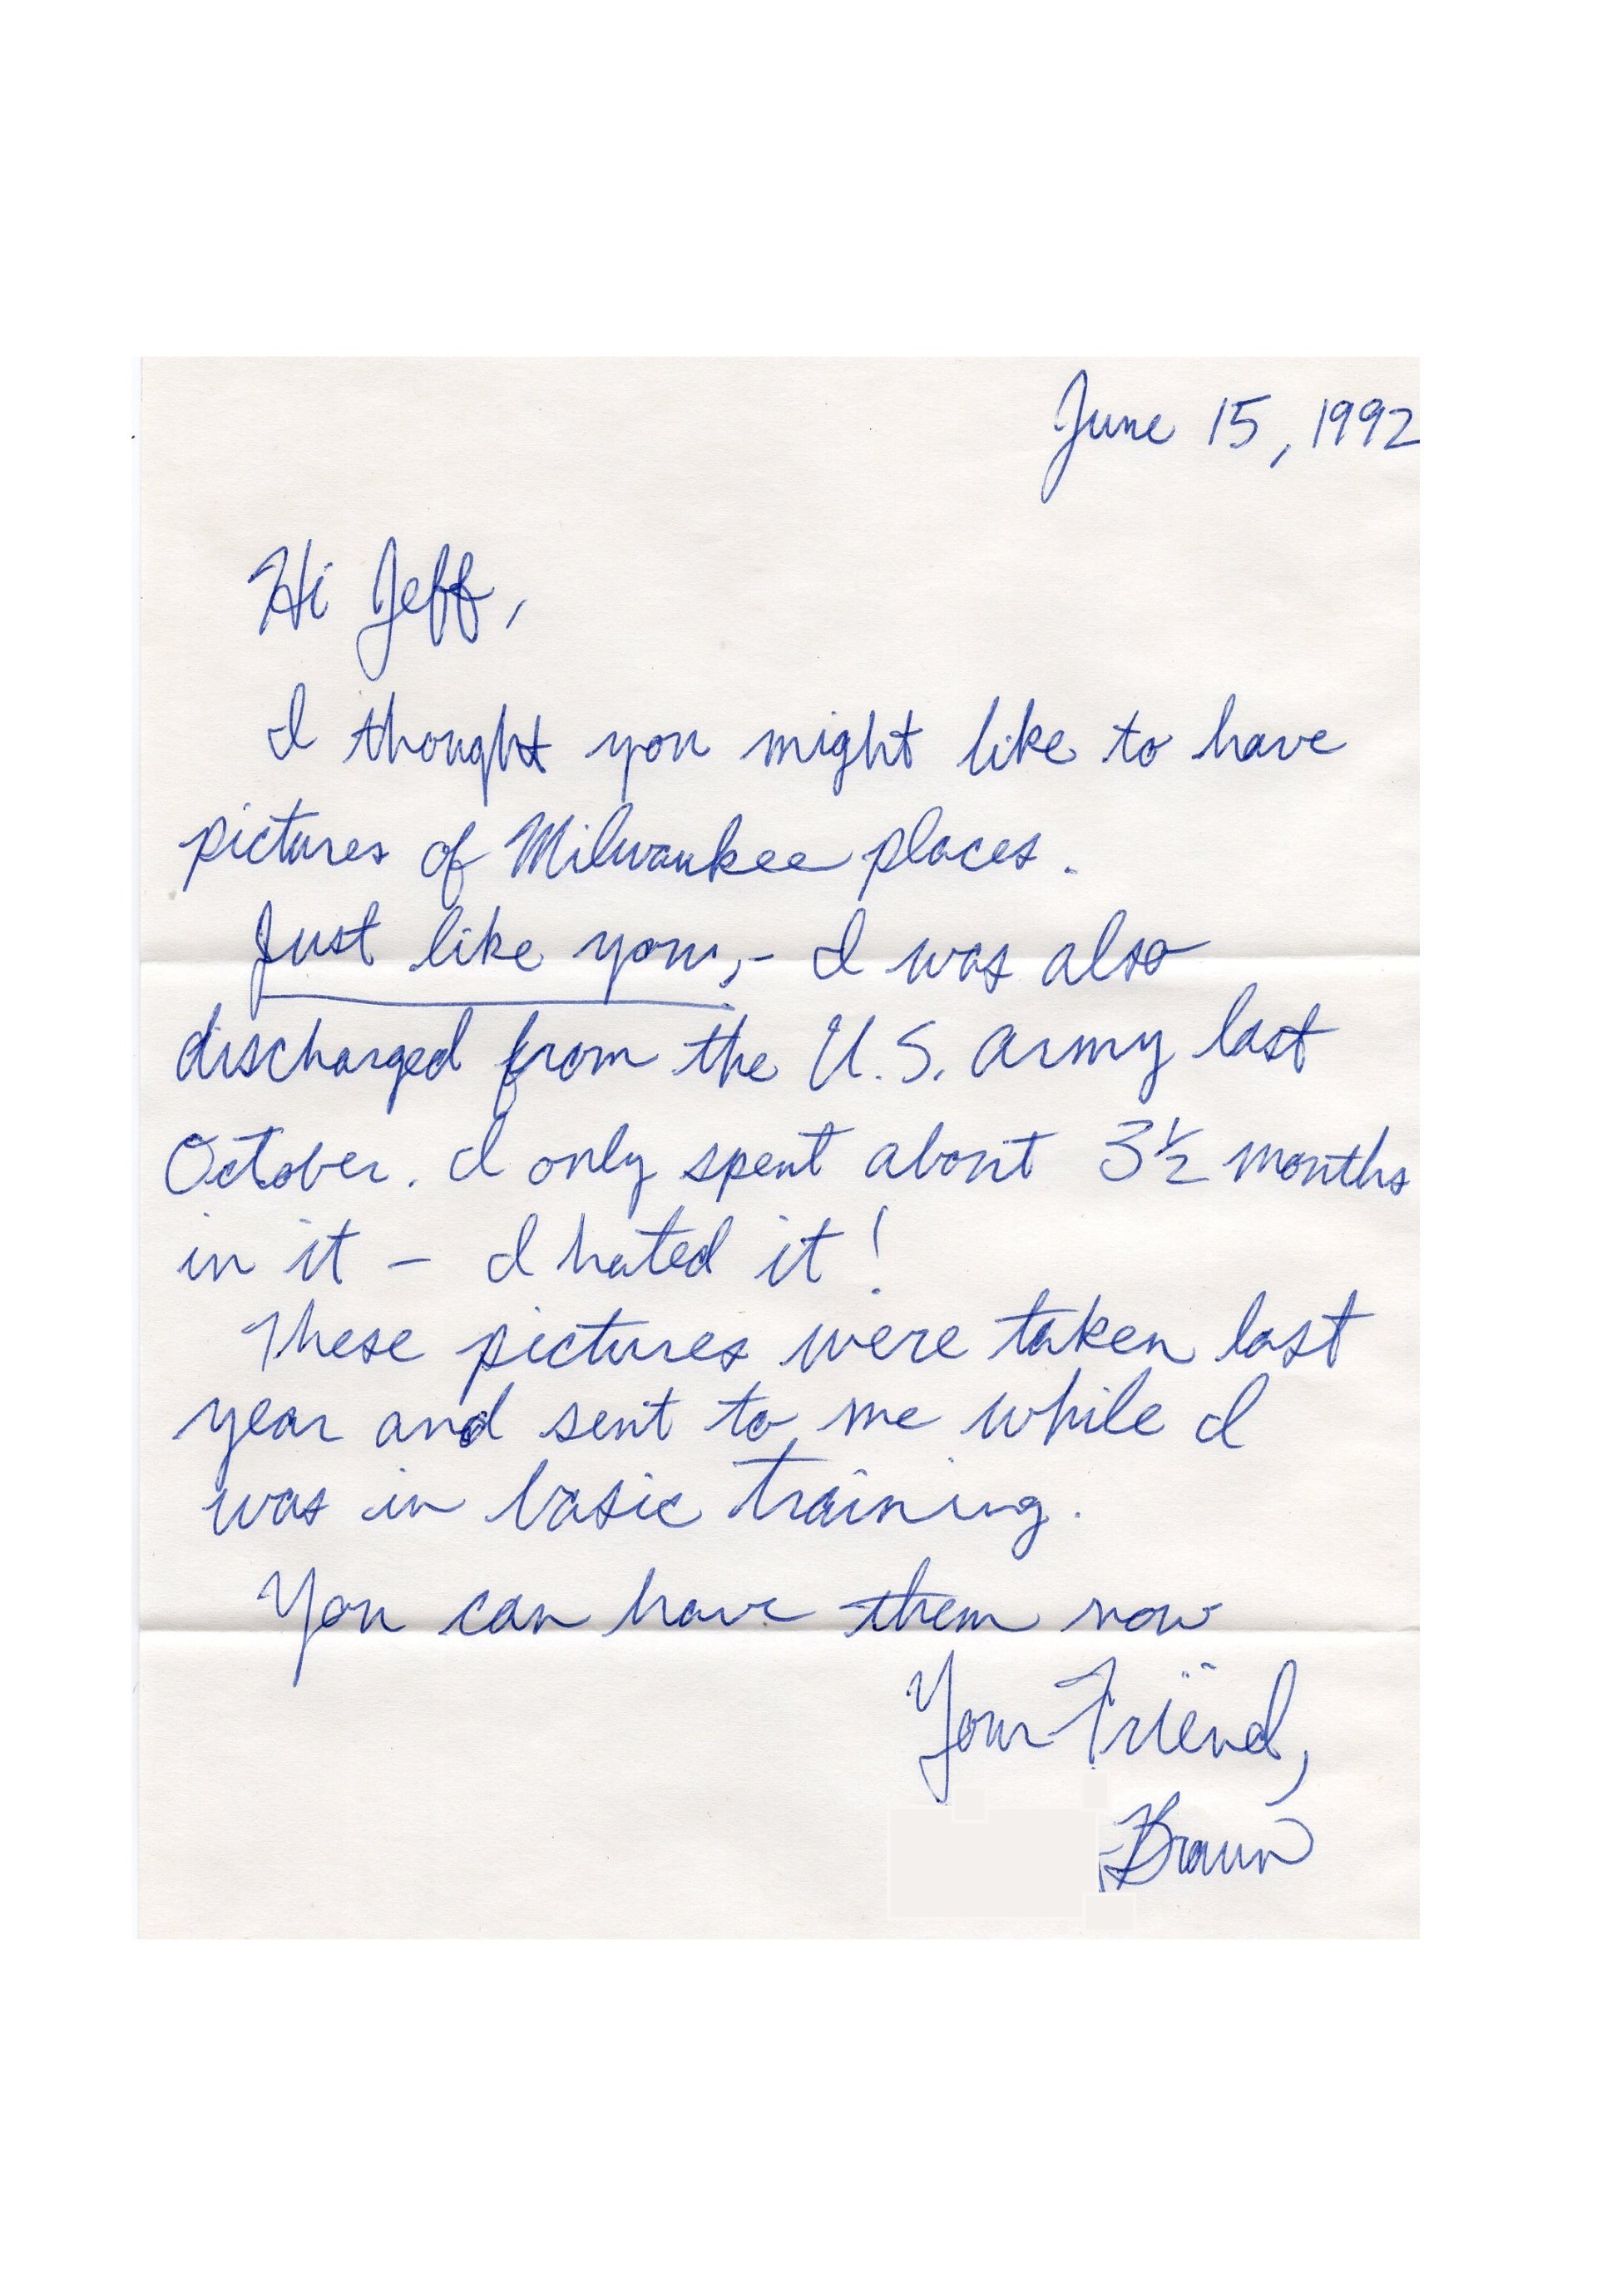 June 15, 1992
Hi Jeff,
I thought you might like to have
pictures of Milwaukee places.
Just like you,- I was also
discharged from the U.S. Army last
October. I only spent about 3½ months
in it - I hated it!
These pictures were taken last
year and sent to me while I
was in basic training.
You can have them now
Your Friend,
Braun